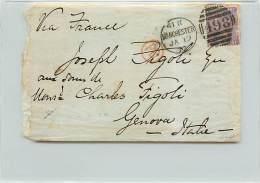 Via France
Joseph Figoli Esq
aux soins de
Monsr Charles Figoli
Genova
Italie
MANCHESTER
JA 12
498